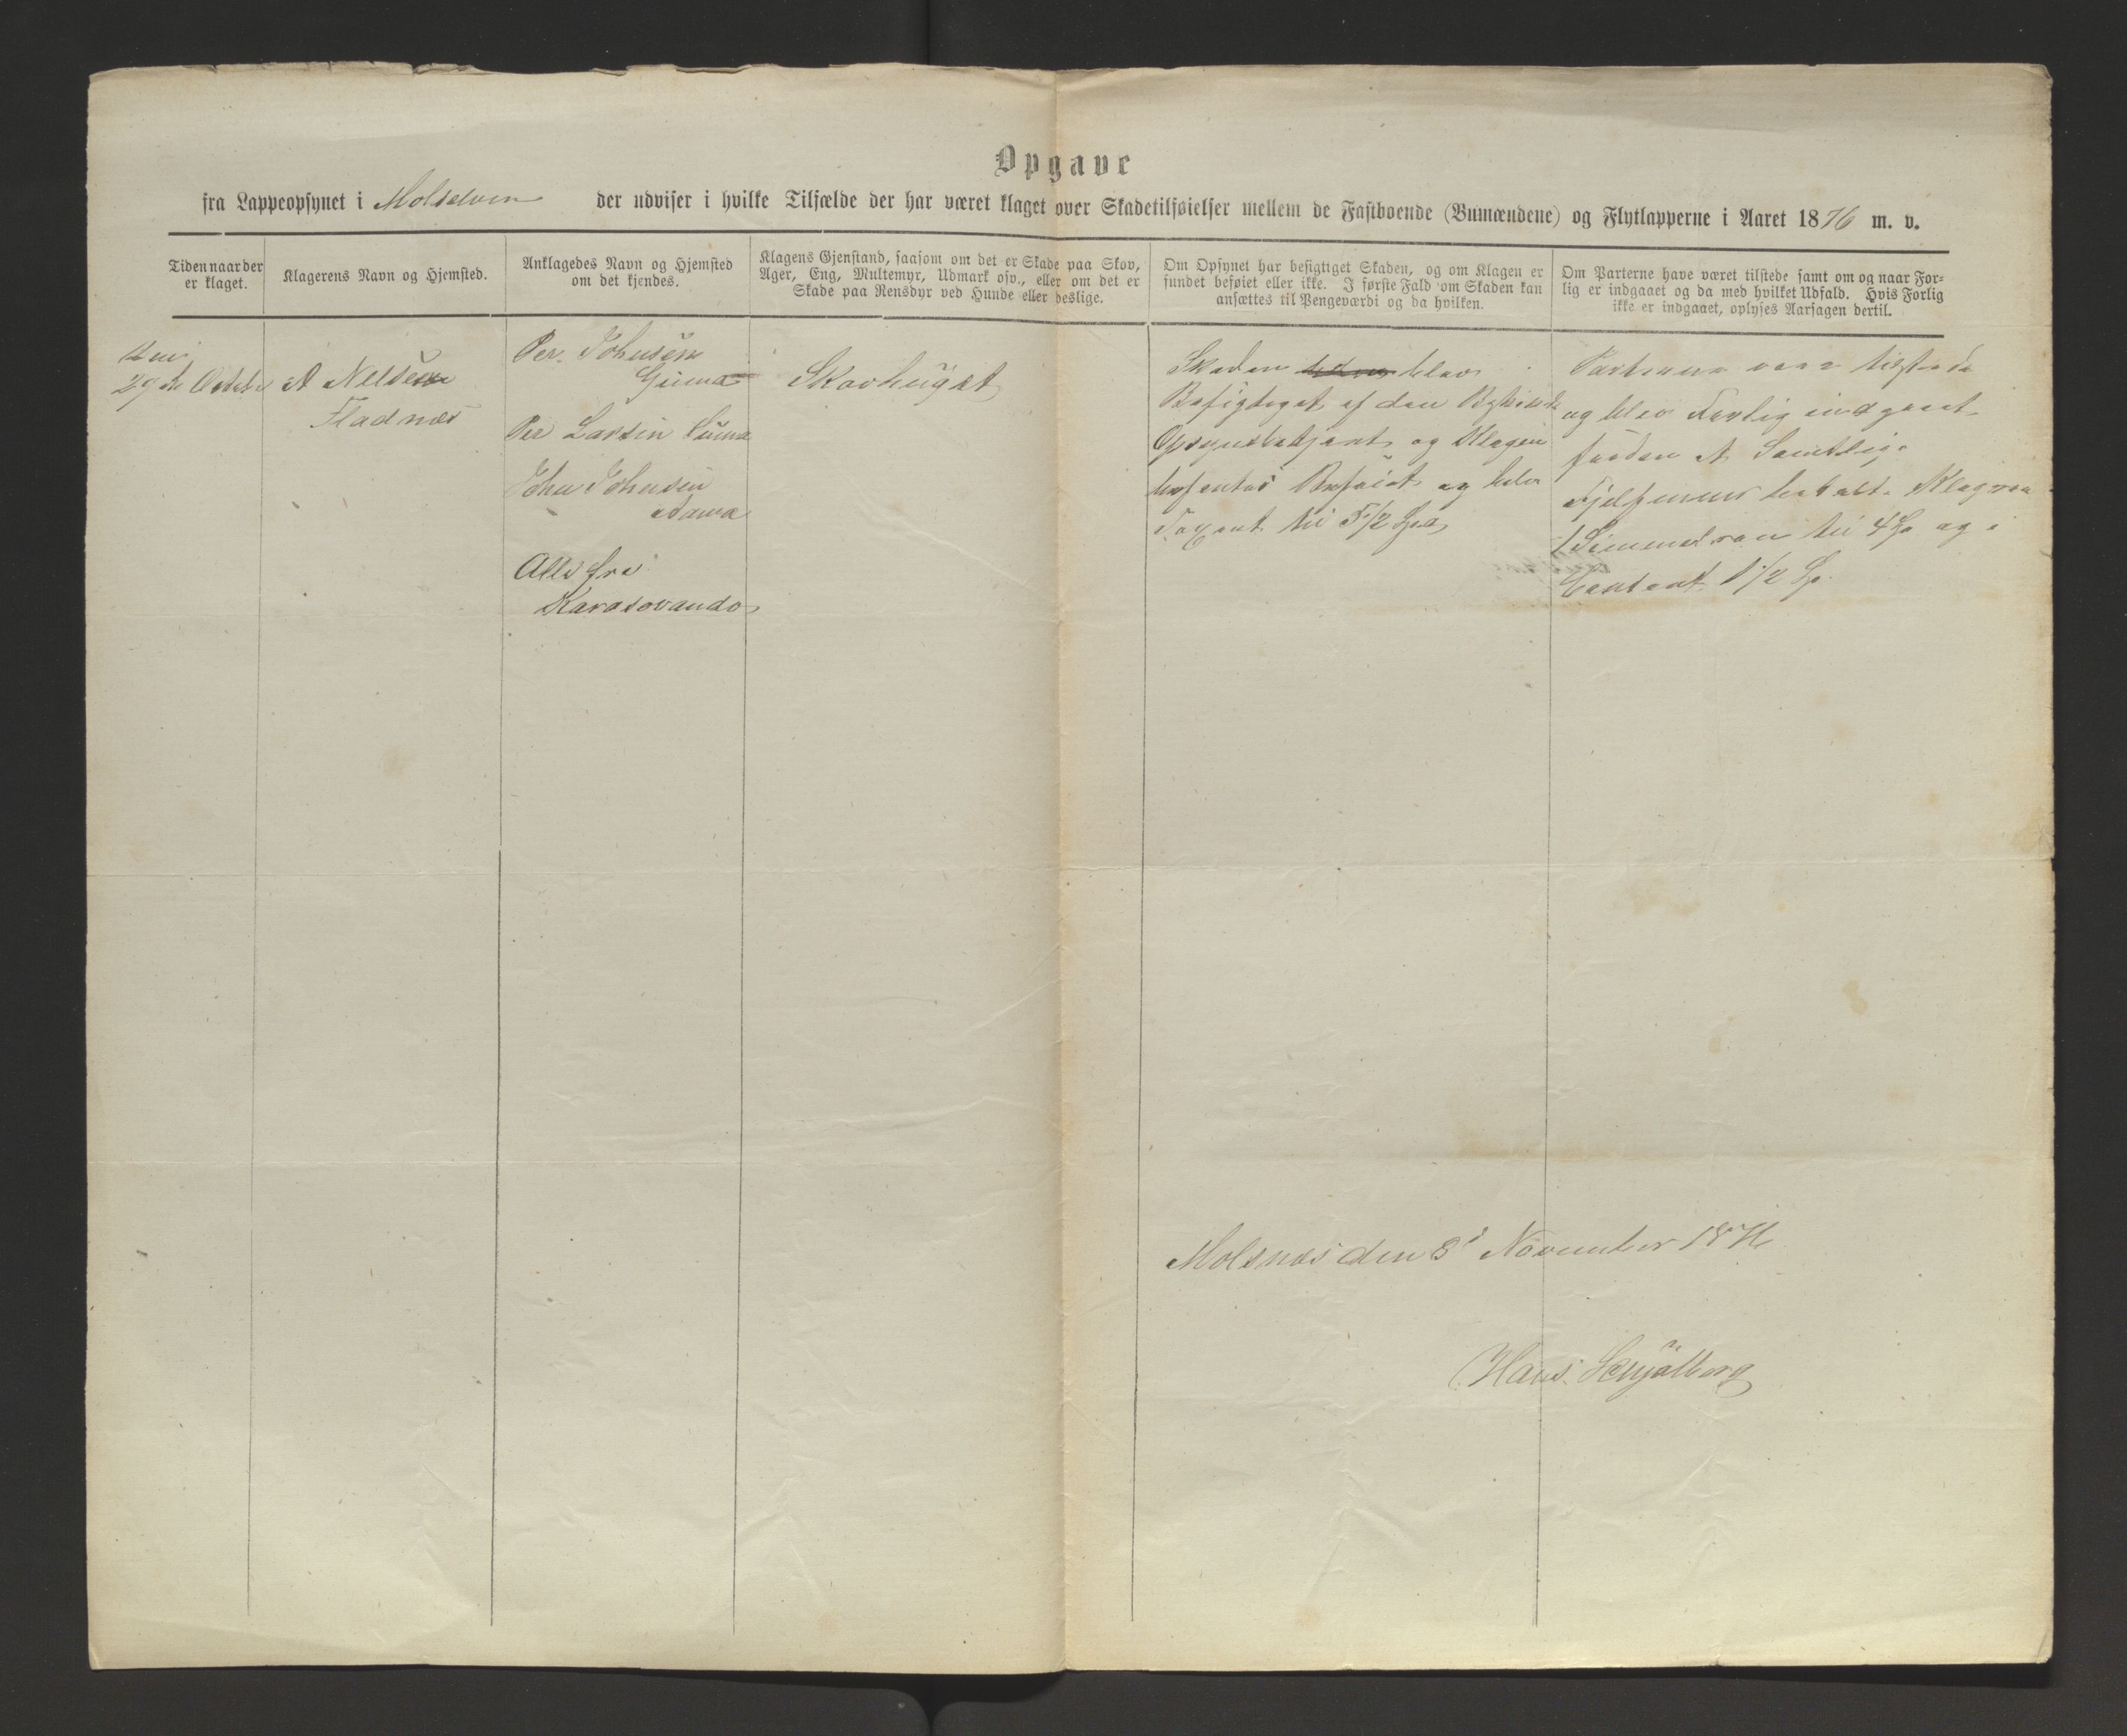 Opgave
fra Lappeopsynet i Molselven der udviser i hvilke Tilfælde der har været klaget over Skadetilføielser mellem de Fastboende (Bumændene) og Flytlapperne i Aaret 1876 m. v.
Tiden naar der
er klaget.
Klagerens Navn og Hjemsted.
Anklagedes Navn og Hjemsted
om det kjendes.
Klagens Gjenstand, saasom om det er Skade paa Skov,
Ager, Eng, Multemyr, Udmark osv., eller om det er
Skade paa Rensdyr ved Hunde eller deslige.
Om Opsynet har besigtiget Skaden, og om Klagen er
fundet beføiet eller ikke. I første Fald om Skaden kan
ansættes til Pengeværdi og da hvilken.
Om Parterne have været tilstede samt om og naar For-
lig er indgaaet og da med hvilket Udfald. Hvis Forlig
ikke er indgaaet, oplyses Aarsagen dertil.
den
29de Octobr
A Nelsen
Fladnæs
Per Johnsen
Guma
Per Larsen Suma
John Johnsen
Nama
Alle fra
Karasovando
Skovhuget
Skaden blev
Besigtiget af den
Opsynsbetjent og Klagen
Beføiet og blev
Taxeret til 5 1/2 Spd
Parterne var tilstede
og blev Forlig indgaaet
saadan at Samtlige
betalte Klageren
1 Simmelren til 4 Sp og i
Contant 1 1/2 Sp.
Molsnæs den 8d November 1876
Hans